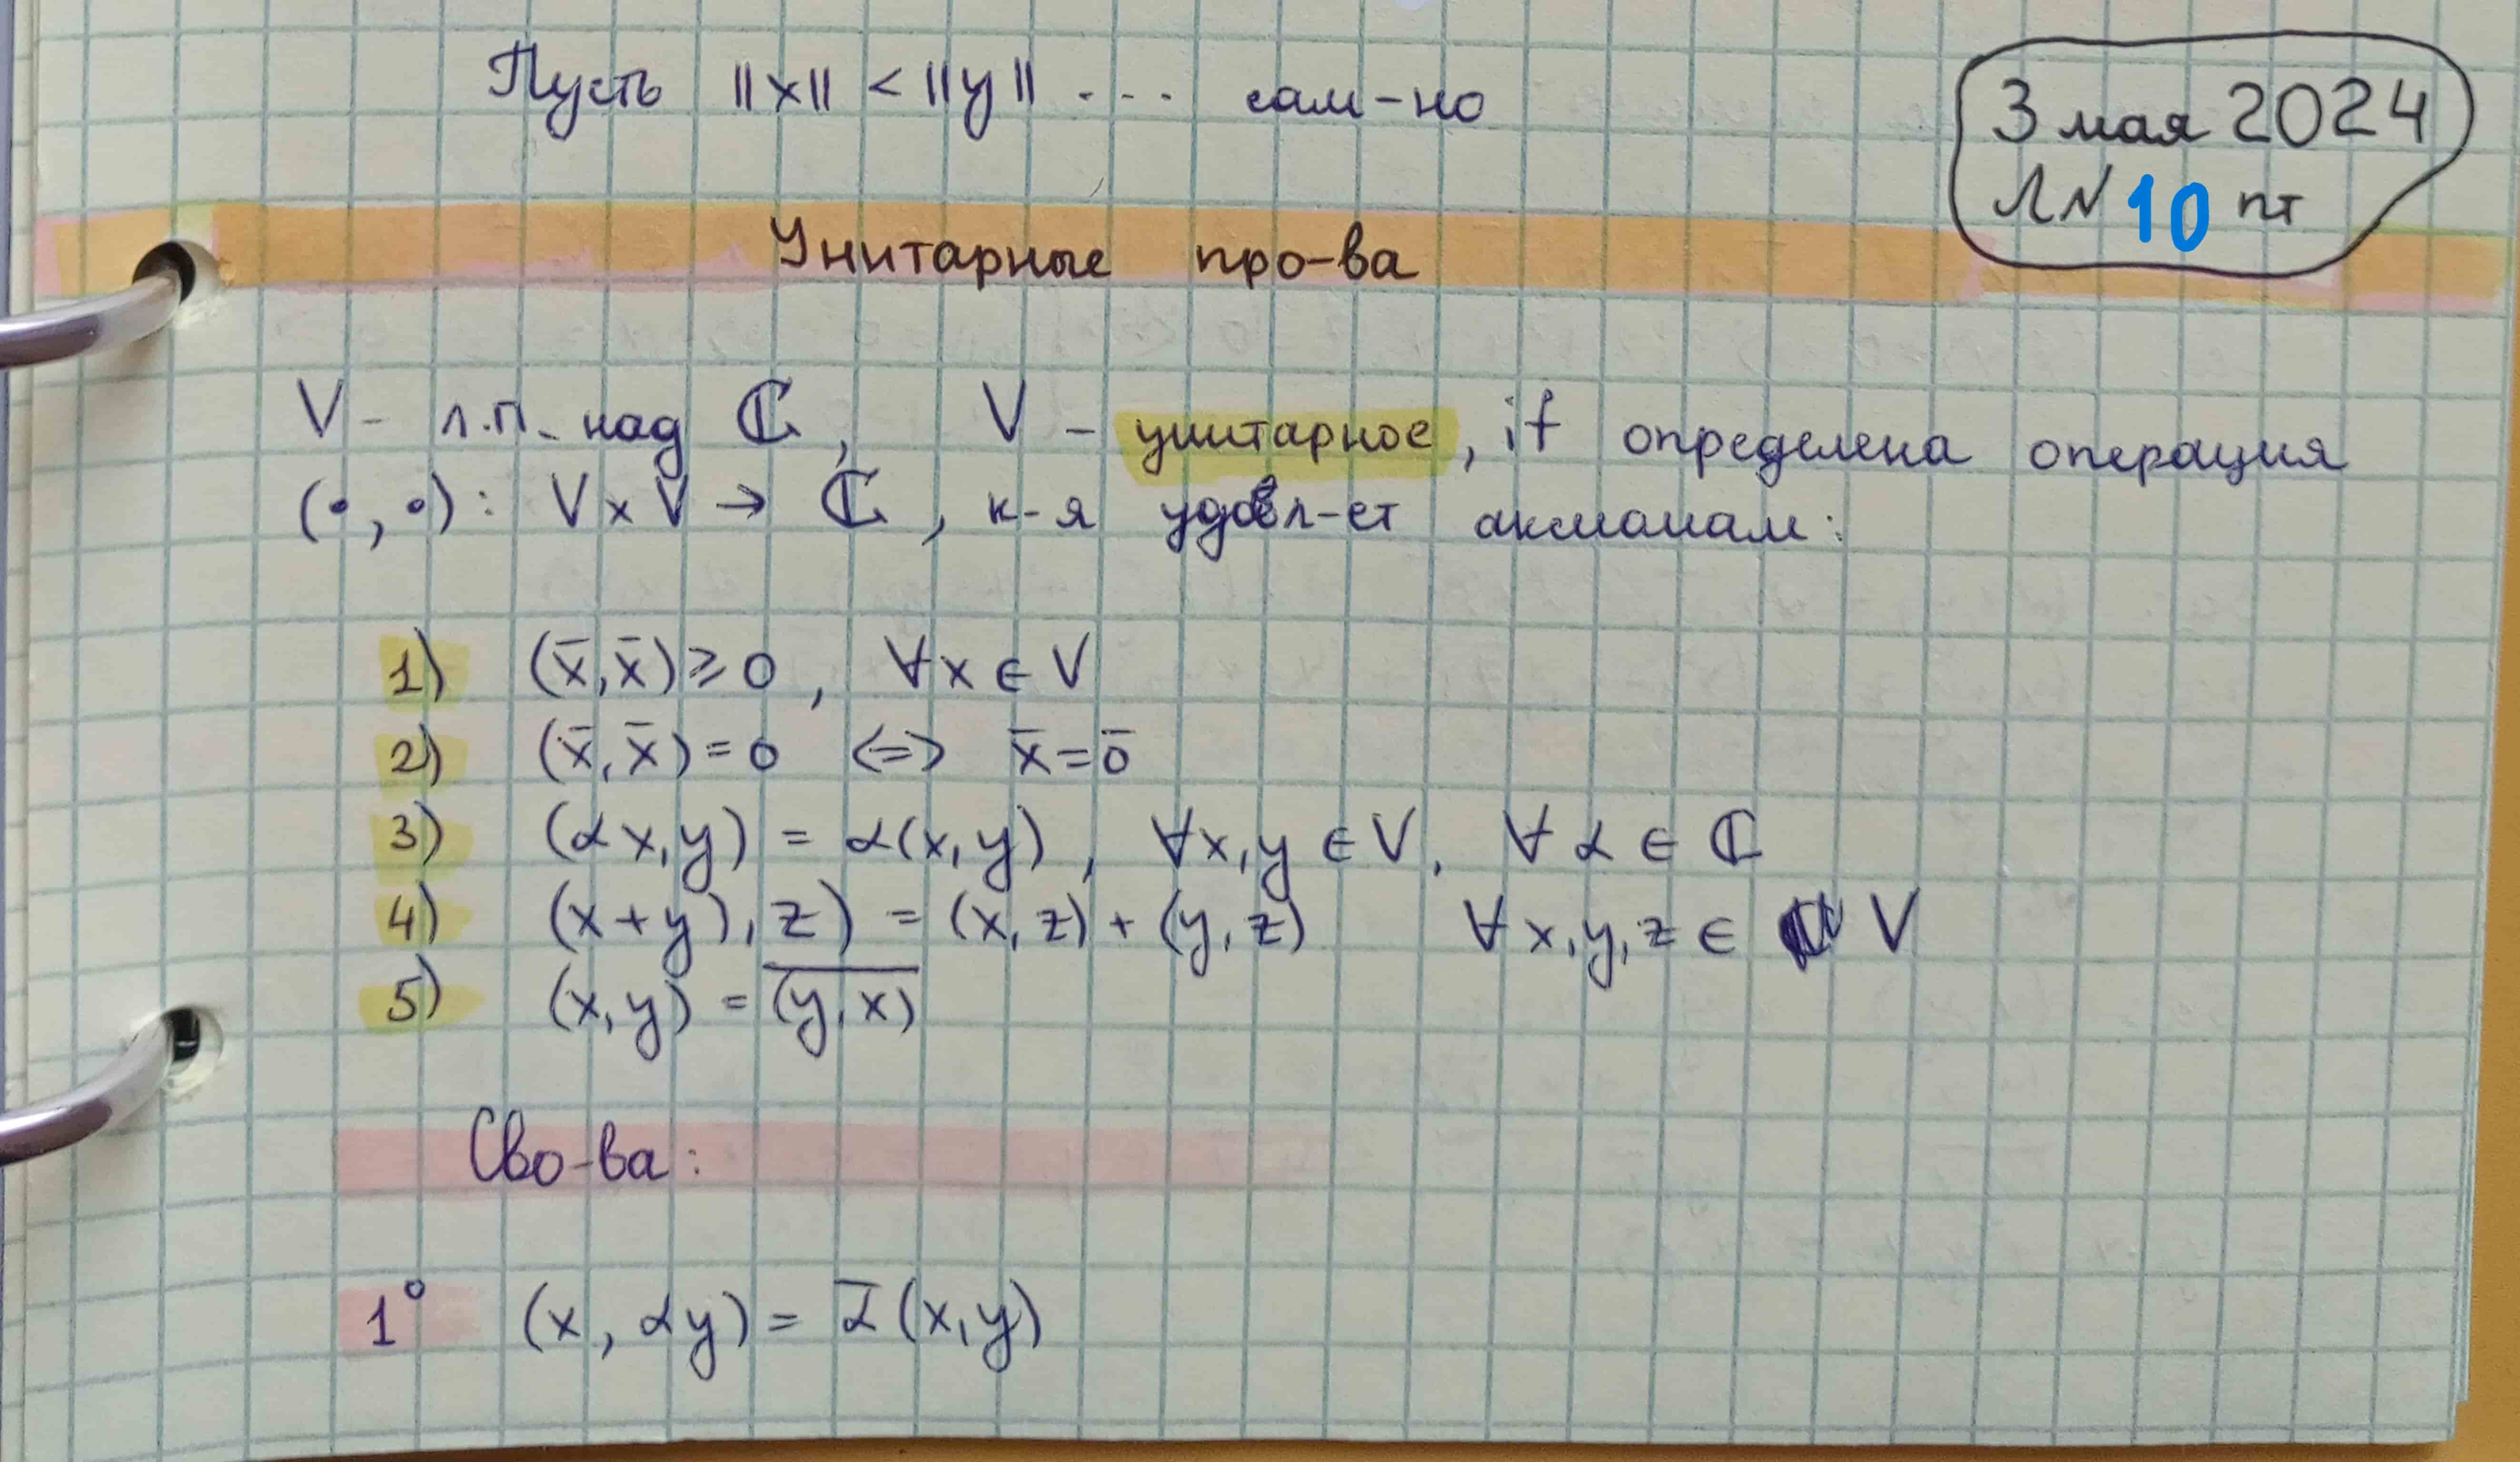 Пусть ||x|| < ||y|| ... сам-но
3 мая 2024
ЛN 10 пт
Унитарные про-ва
V - л.п. над ℂ, V - унитарное, if определена операция
(•, •): V × V → ℂ, к-я удовл-ет аксиомам:
1) (x̄, x̄) ⩾ 0, ∀x ∈ V
2) (x̄, x̄) = 0 <=> x̄ = 0̄
3) (αx, y) = α(x, y), ∀x, y ∈ V, ∀α ∈ ℂ
4) (x + y), z) = (x, z) + (y, z) ∀x, y, z ∈ V
5) (x, y) = \overline{(y, x)}
Сво-ва:
1° (x, αy) = ᾱ(x, y)